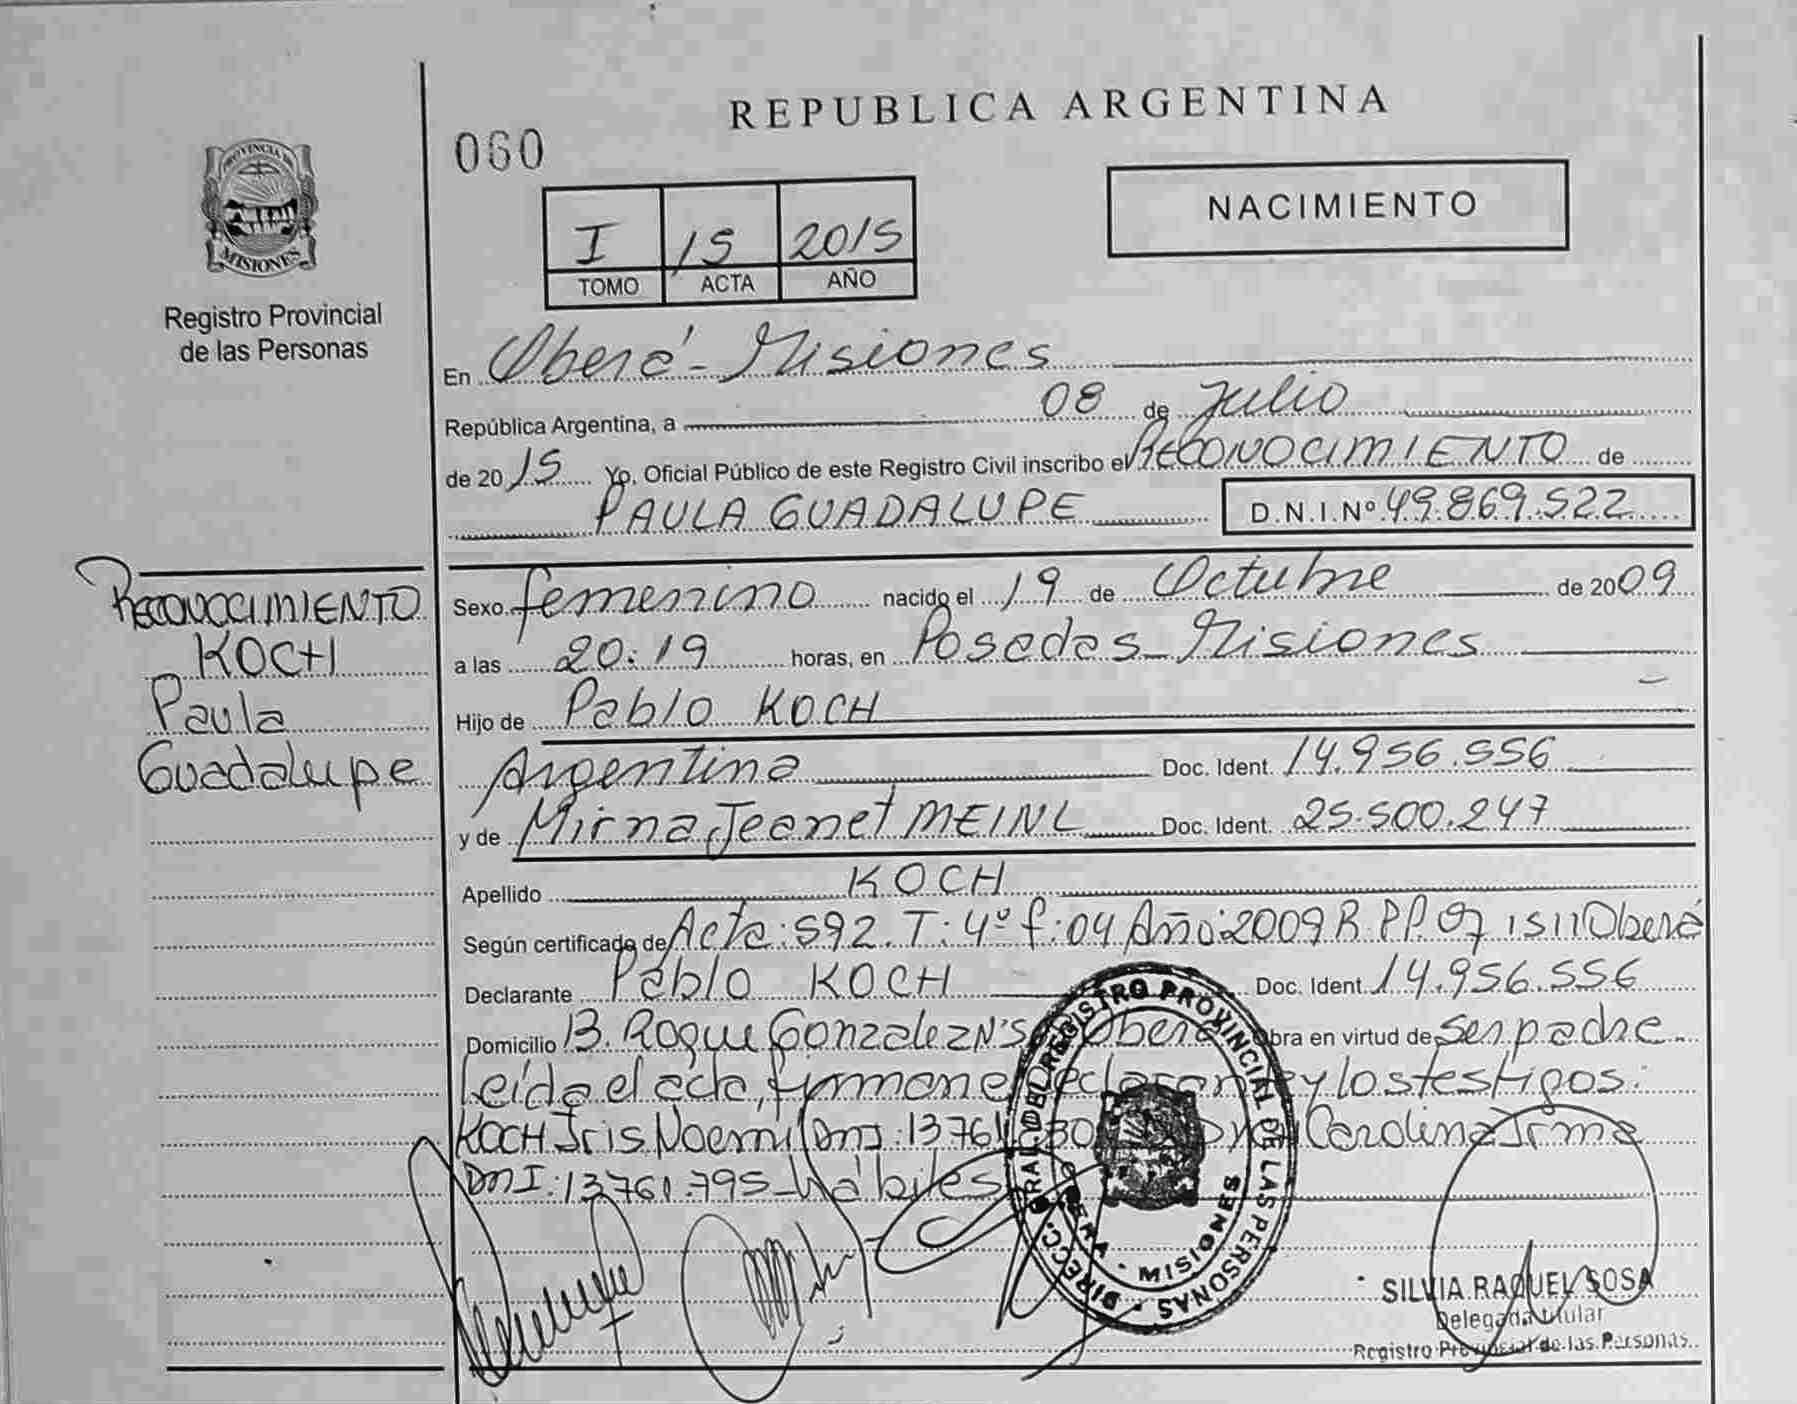 REPUBLICA ARGENTINA
060
PROVINCIA DE
MISIONES
Registro Provincial
de las Personas
NACIMIENTO
I 15 2015
TOMO ACTA AÑO
En Oberá - Misiones
República Argentina, a 08 de Julio
de 2015 Yo, Oficial Público de este Registro Civil inscribo el RECONOCIMIENTO de
PAULA GUADALUPE D.N.I.Nº 49.869.522
RECONOCIMIENTO
KOCH
Paula
Guadalupe
Sexo femenino nacido el 19 de Octubre de 2009
a las 20:19 horas, en Posadas - Misiones
Hijo de Pablo KOCH
Argentina Doc. Ident. 14.956.556
y de Mirna Jeanet MEINL Doc. Ident. 25.500.247
Apellido KOCH
Según certificado de Acta: 592. T: 4º f: 04 Año: 2009 R.P.P. Oberá
Declarante Pablo KOCH Doc. Ident. 14.956.556
Domicilio B. Roque Gonzalez Oberá Obra en virtud de ser padre.
Leída el acta, firman el declarante y los testigos:
KOCH Iris Noemí DNI: 13761 Carolina Irma
DNI: 13.761.795 - hábiles
DIRECC. GRAL. DEL REGISTRO PROVINCIAL DE LAS PERSONAS
MISIONES
SILVIA RAQUEL SOSA
Delegada titular
Registro Provincial de las Personas